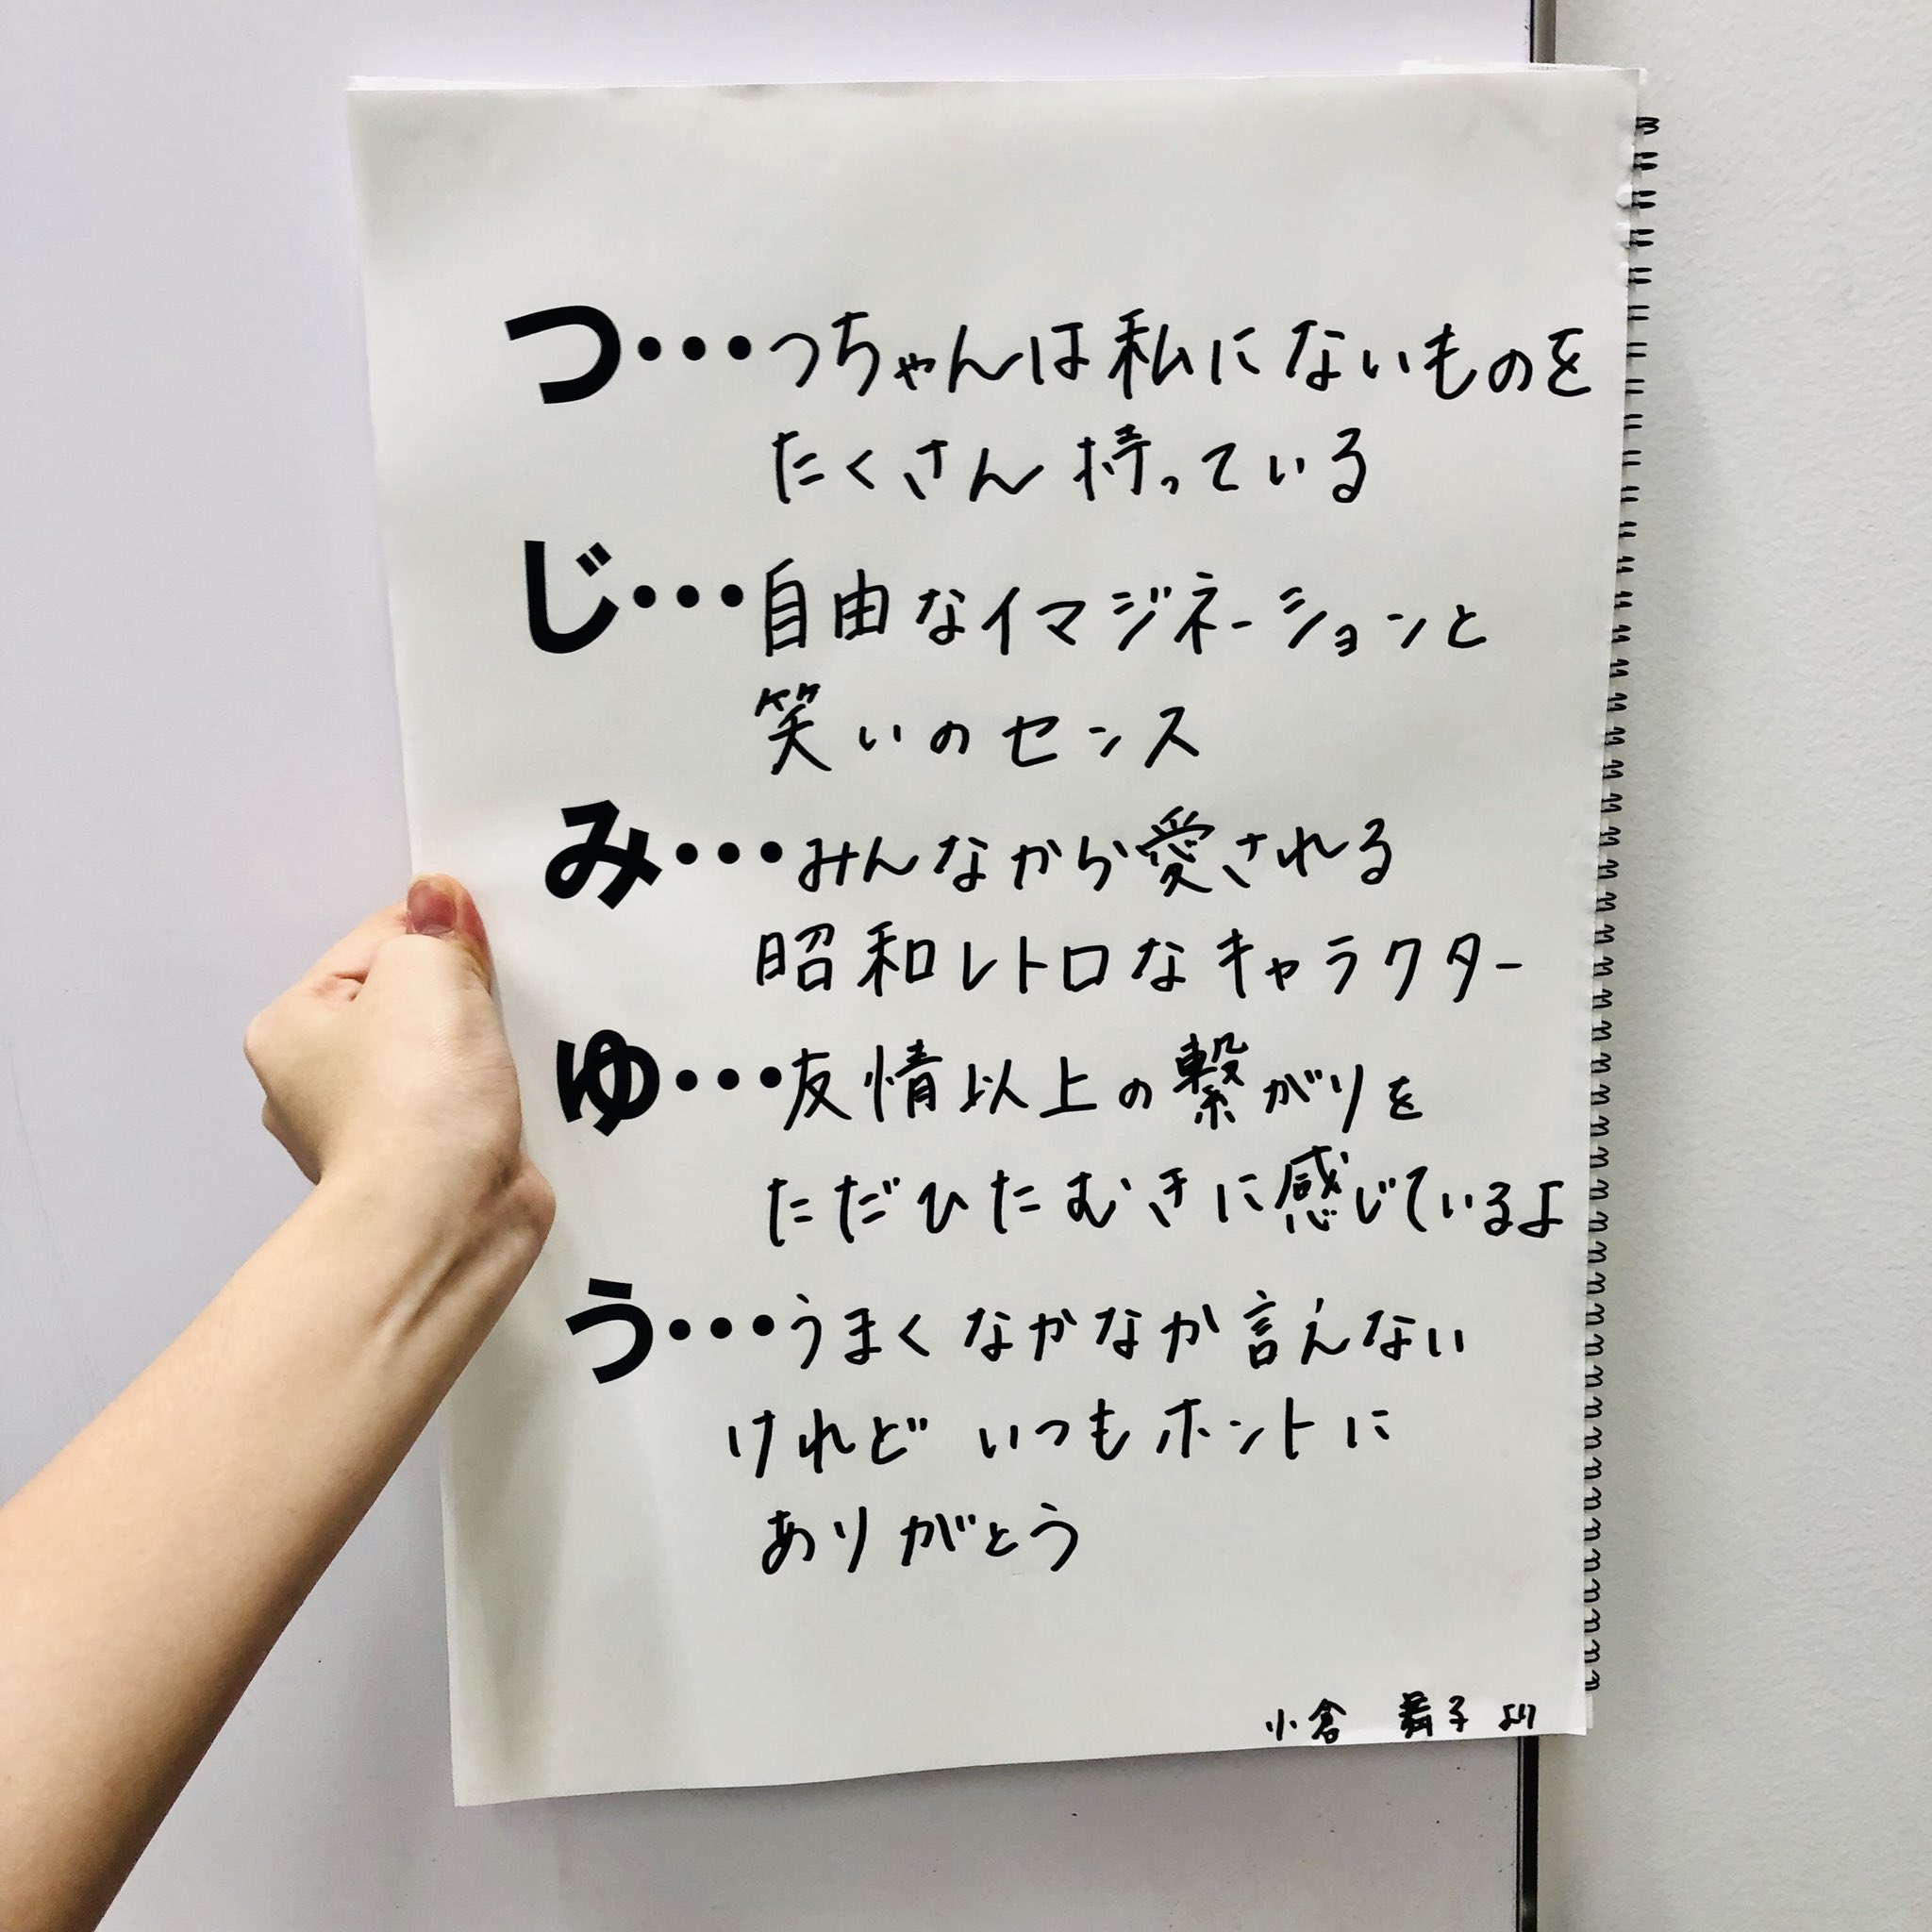 つ・・・つちゃんは私にないものを
たくさん持っている
じ・・・自由なイマジネーションと
笑いのセンス
み・・・みんなから愛される
昭和レトロなキャラクター
ゆ・・・友情以上の繋がりを
ただひたむきに感じているよ
う・・・うまくなかなか言えない
けれど いつもホントに
ありがとう
小倉 舞子より